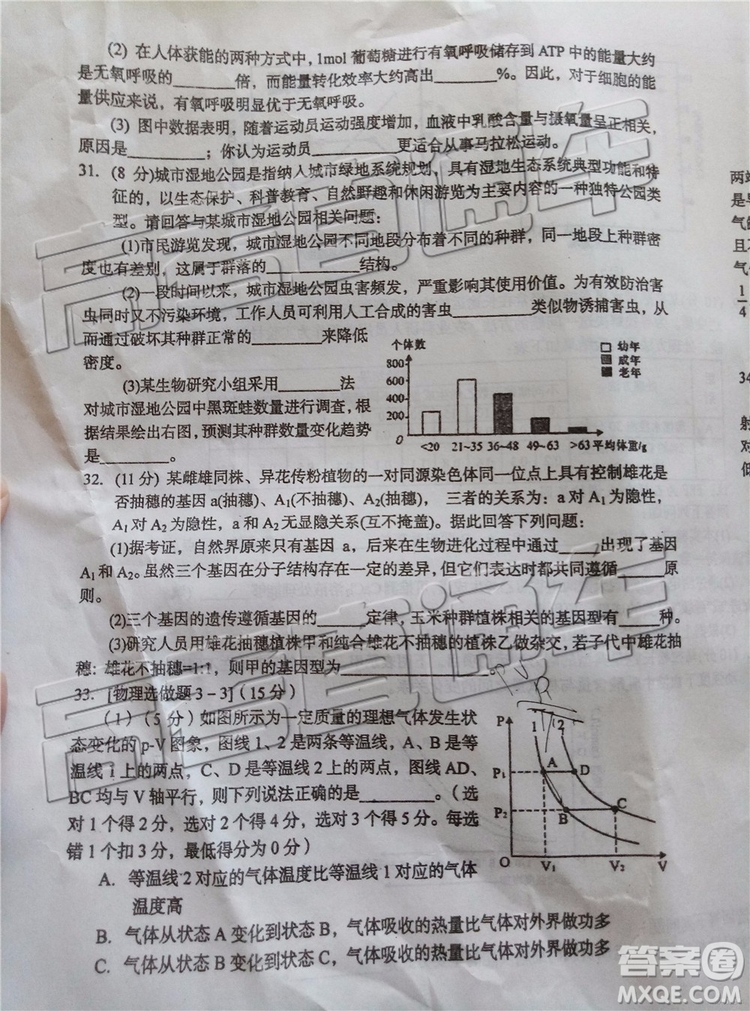 (2) 在人体获能的两种方式中，1mol 葡萄糖进行有氧呼吸储存到 ATP 中的能量大约
是无氧呼吸的________倍，而能量转化效率大约高出________%。因此，对于细胞的能
量供应来说，有氧呼吸明显优于无氧呼吸。
(3) 图中数据表明，随着运动员运动强度增加，血液中乳酸含量与摄氧量呈正相关，
原因是________；你认为运动员________更适合从事马拉松运动。
31. (8 分)城市湿地公园是指纳入城市绿地系统规划，具有湿地生态系统典型功能和特
征的，以生态保护、科普教育、自然野趣和休闲游览为主要内容的一种独特公园类
型。请回答与某城市湿地公园相关问题：
(1)市民游览发现，城市湿地公园不同地段分布着不同的种群，同一地段上种群密
度也有差别，这属于群落的________结构。
(2)一段时间以来，城市湿地公园虫害频发，严重影响其使用价值。为有效防治害
虫同时又不污染环境，工作人员可利用人工合成的害虫________类似物诱捕害虫，从
而通过破坏其种群正常的________来降低
密度。
(3)某生物研究小组采用________法
对城市湿地公园中黑斑蛙数量进行调查，根
据结果绘出右图，预测其种群数量变化趋势
是________。
个体数
幼年
成年
老年
800
600
400
200
0
<20 21~35 36~48 49~63 >63 平均体重/g
32. (11 分) 某雌雄同株、异花传粉植物的一对同源染色体同一位点上具有控制雄花是
否抽穗的基因 a(抽穗)、A₁(不抽穗)、A₂(抽穗)，三者的关系为：a 对 A₁ 为隐性，
A₁ 对 A₂ 为隐性，a 和 A₂ 无显隐关系(互不掩盖)。据此回答下列问题：
(1)据考证，自然界原来只有基因 a，后来在生物进化过程中通过____出现了基因
A₁ 和 A₂。虽然三个基因在分子结构存在一定的差异，但它们表达时都共同遵循____原
则。
(2)三个基因的遗传遵循基因的______定律，玉米种群植株相关的基因型有____种。
(3)研究人员用雄花抽穗植株甲和纯合雄花不抽穗的植株乙做杂交，若子代中雄花抽
穗：雄花不抽穗=1:1，则甲的基因型为________。
33. [物理选做题 3－3]（15 分）
（1）（5 分）如图所示为一定质量的理想气体发生状
态变化的 p-V 图象，图线 1、2 是两条等温线，A、B 是等
温线 1 上的两点，C、D 是等温线 2 上的两点，图线 AD、
BC 均与 V 轴平行，则下列说法正确的是________。（选
对 1 个得 2 分，选对 2 个得 4 分，选对 3 个得 5 分。每选
错 1 个扣 3 分，最低得分为 0 分）
P
1 2
P₁ A D
P₂ B C
O V₁ V₂ V
A. 等温线 2 对应的气体温度比等温线 1 对应的气体
温度高
B. 气体从状态 A 变化到状态 B，气体吸收的热量比气体对外界做功多
C. 气体从状态 B 变化到状态 C，气体吸收的热量比气体对外界做功多
两端
是早
气的
且
气体
1
4
34
射
对
是
高考直通车
高考直通车
答案圈
MXQE.COM